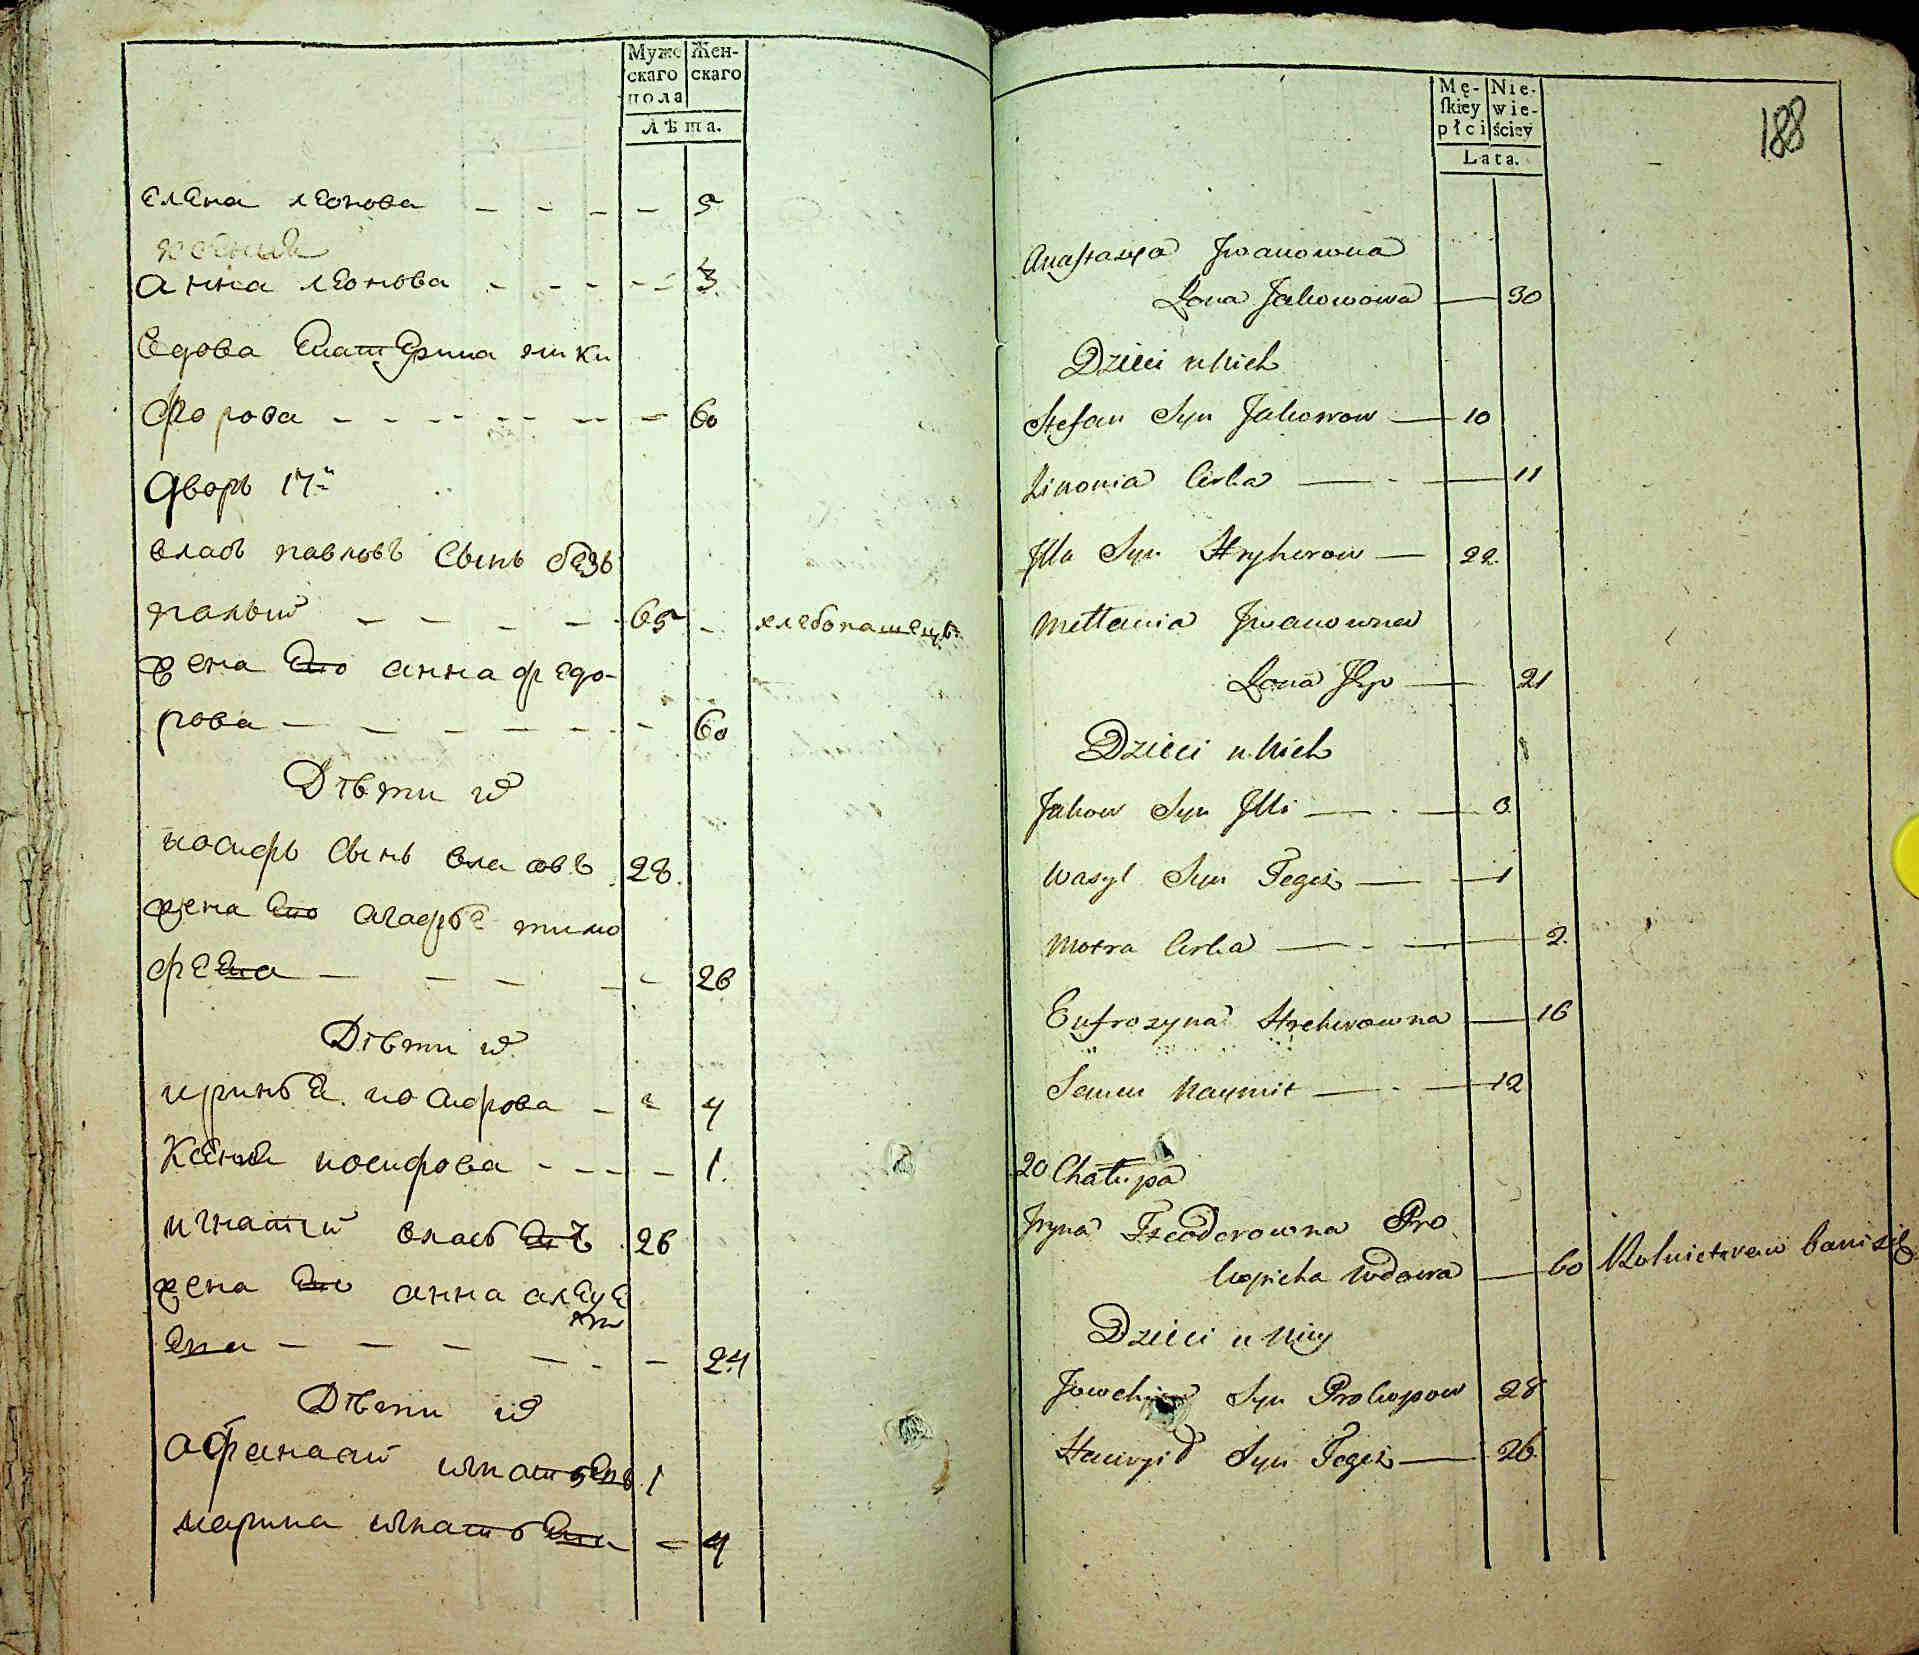 Муже
скаго
пола
Жен-
скаго
Лѣта.
елена леонова - - - - 5
анна леонова - - - - - 3
вдова Екатерина ники
форова - - - - - - - 60
Дворъ 17й
власъ павловъ сынъ безъ
палый - - - - - 65 - хлебопашецъ
жена Его анна федо-
рова - - - - - - 60
Дѣти ихъ
иосифъ сынъ власовъ 28
жена Его агафьѣ тимо
феева - - - - - 26
Дѣти ихъ
иринѣ иосифова - - 4
Ксениѣ иосифова - - - - 1.
игнатий власовъ 26
жена Его анна алексе
ева - - - - - - 24
Дѣти ихъ
афанасий игнатьевъ 1
марина игнатьева - 4
Mę-
skiey
płci
Nie-
wie-
ściey
Lata.
188
Anastazya Jwanowna
Żona Jakowowa — 30
Dzieci u Nich
Stefan Syn Jakowow — 10
Zinowia Corka — - — 11
Jlla Syn Hryhorow — 22
Mellania Jwanowna
Żona Jego — 21
Dzieci u Nich
Jakow Syn Jlli — - — 3
Wasyl Syn Tegoż — — 1
Motra Corka — - — 2.
Eufrozyna Hrehorowna — 16
Semen Naymit — - — 12
20 Chałupa
Jryna Fzeodorowna Pro
kopicha Wdowa — 60 Rolnictwem bawi się
Dzieci u Niey
Jowchim Syn Prokopow 28
Hawryło Syn Tegoż — 26